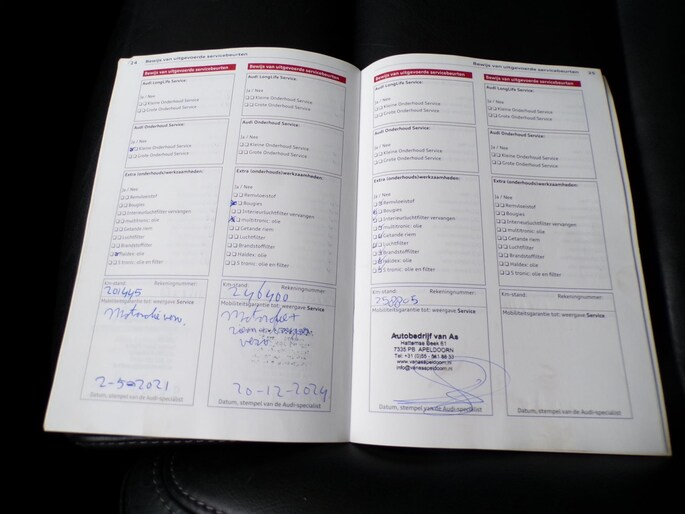 24 Bewijs van uitgevoerde servicebeurten
Bewijs van uitgevoerde servicebeurten
Audi LongLife Service:
Ja / Nee
Kleine Onderhoud Service
Grote Onderhoud Service
Audi Onderhoud Service:
Ja / Nee
Kleine Onderhoud Service
Grote Onderhoud Service
Extra (onderhouds)werkzaamheden:
Ja / Nee
Remvloeistof
Bougies
Interieurluchtfilter vervangen
multitronic: olie
Getande riem
Luchtfilter
Brandstoffilter
Haldex: olie
S tronic: olie en filter
Km-stand: Rekeningnummer:
201445
Mobiliteitsgarantie tot: weergave Service
Motorolie verv.
2-5-2021
Datum, stempel van de Audi-specialist
Bewijs van uitgevoerde servicebeurten
Audi LongLife Service:
Ja / Nee
Kleine Onderhoud Service
Grote Onderhoud Service
Audi Onderhoud Service:
Ja / Nee
Kleine Onderhoud Service
Grote Onderhoud Service
Extra (onderhouds)werkzaamheden:
Ja / Nee
Remvloeistof
Bougies
Interieurluchtfilter vervangen
multitronic: olie
Getande riem
Luchtfilter
Brandstoffilter
Haldex: olie
S tronic: olie en filter
Km-stand: Rekeningnummer:
246400
Mobiliteitsgarantie tot: weergave Service
20-12-2024
Datum, stempel van de Audi-specialist
Bewijs van uitgevoerde servicebeurten 25
Bewijs van uitgevoerde servicebeurten
Audi LongLife Service:
Ja / Nee
Kleine Onderhoud Service
Grote Onderhoud Service
Audi Onderhoud Service:
Ja / Nee
Kleine Onderhoud Service
Grote Onderhoud Service
Extra (onderhouds)werkzaamheden:
Ja / Nee
Remvloeistof
Bougies
Interieurluchtfilter vervangen
multitronic: olie
Getande riem
Luchtfilter
Brandstoffilter
Haldex: olie
S tronic: olie en filter
Km-stand: Rekeningnummer:
Mobiliteitsgarantie tot: weergave Service
Autobedrijf van As
Hattemse Beek 51
7335 PB APELDOORN
www.vanasapeldoorn.nl
info@vanasapeldoorn.nl
Datum, stempel van de Audi-specialist
Bewijs van uitgevoerde servicebeurten
Audi LongLife Service:
Ja / Nee
Kleine Onderhoud Service
Grote Onderhoud Service
Audi Onderhoud Service:
Ja / Nee
Kleine Onderhoud Service
Grote Onderhoud Service
Extra (onderhouds)werkzaamheden:
Ja / Nee
Remvloeistof
Bougies
Interieurluchtfilter vervangen
multitronic: olie
Getande riem
Luchtfilter
Brandstoffilter
Haldex: olie
S tronic: olie en filter
Km-stand: Rekeningnummer:
Mobiliteitsgarantie tot: weergave Service
Datum, stempel van de Audi-specialist